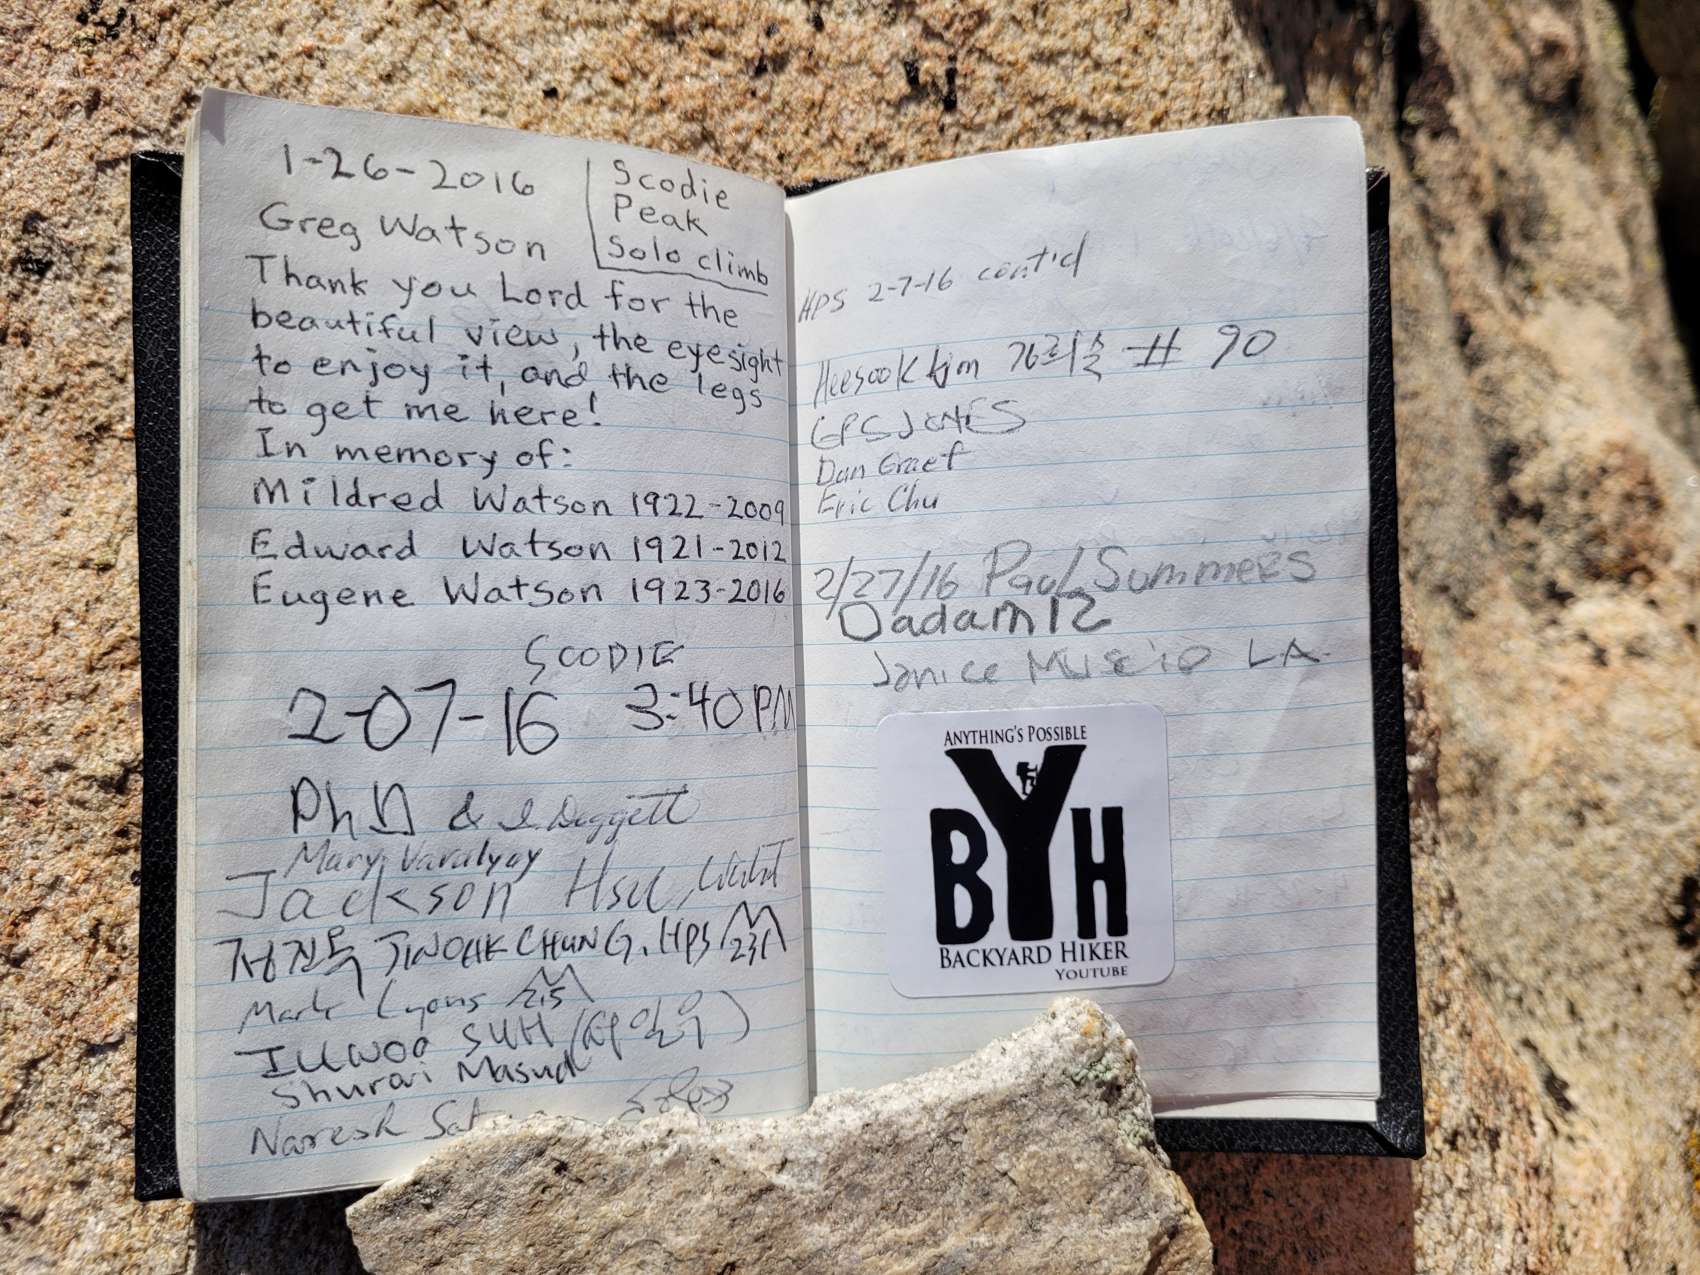 1-26-2016
Scodie
Peak
Solo climb
Greg Watson
Thank you Lord for the
beautiful view, the eyesight
to enjoy it, and the legs
to get me here!
In memory of:
Mildred Watson 1922-2009
Edward Watson 1921-2012
Eugene Watson 1923-2016
SCODIE
2-07-16 3:40PM
&
Mary
Jackson Hsu,
정진옥 JINOHK CHUNG. HPS 231
Mark Lyons 215
ILWOO SUH (서일우)
Masud
Naresh
HPS 2-7-16 cont'd
Heesook kim # 90
GPSJONES
Dan Graef
Eric Chu
2/27/16 Paul Sommers
Dadam12
Janice LA.
ANYTHING'S POSSIBLE
BYH
BACKYARD HIKER
YOUTUBE